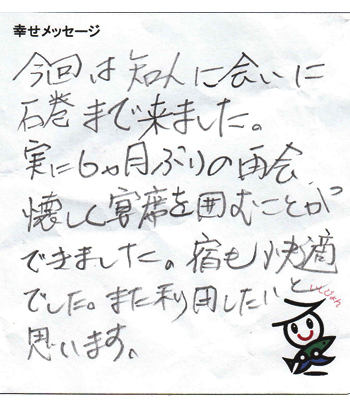 幸せメッセージ
今回は知人に会いに
石巻まで来ました。
実に6ヵ月ぶりの再会
懐しく宴席を囲むことが
できました。宿も快適
でした。また利用したいと
思います。